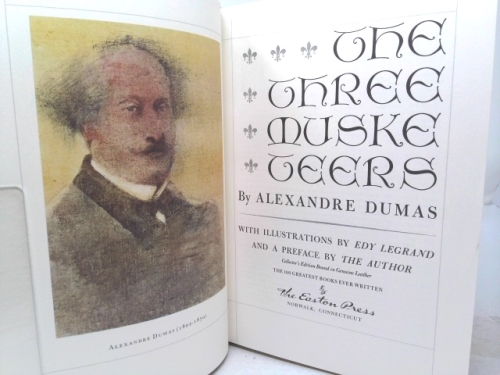 ALEXANDRE DUMAS (1802-1870)
THE
THREE
MUSKE
TEERS
By ALEXANDRE DUMAS
WITH ILLUSTRATIONS BY EDY LEGRAND
AND A PREFACE BY THE AUTHOR
Collector's Edition Bound in Genuine Leather
THE 100 GREATEST BOOKS EVER WRITTEN
The Easton Press
NORWALK, CONNECTICUT